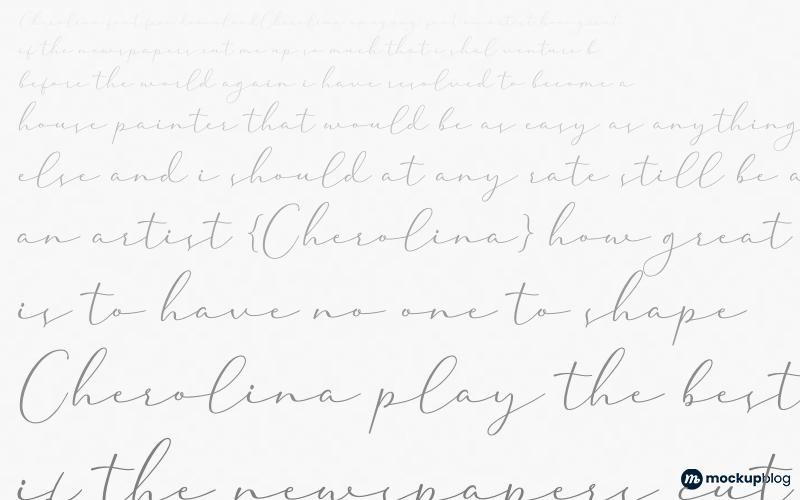 Cherolina font free download Cherolina amazing font an artist how great
if the newspapers cut me up so much that i shal venture b
before the world again i have resolved to become a
house painter that would be as easy as anything
else and i should at any rate still be a
an artist {Cherolina} how great
is to have no one to shape
Cherolina play the best
if the newspapers cut
mockupblog